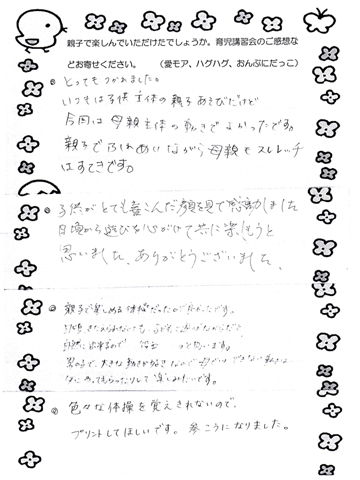 親子で楽しんでいただけたでしょうか。育児講習会のご感想な
どお寄せください。 （愛モア、ハグハグ、おんぶにだっこ）
とってもつかれました。
いつもは子供主体の親子あそびだけど
今回は母親主体の動きでよかったです。
親子でふれあいながら母親もストレッチ
はすてきです。
子供がとても喜こんだ顔を見て感動しました
日頃から遊びを心がけて共に楽しもうと
思いました、ありがとうございました、
親子で楽しめる体操だったのでよかったです。
と思います。
男の子で、大きな動きが好きなので母では
楽しみたいです。
色々な体操を覚えきれないので、
プリントしてほしいです。参こうになりました。